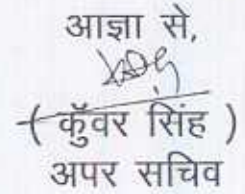 आज्ञा से,
( कुँवर सिंह )
अपर सचिव